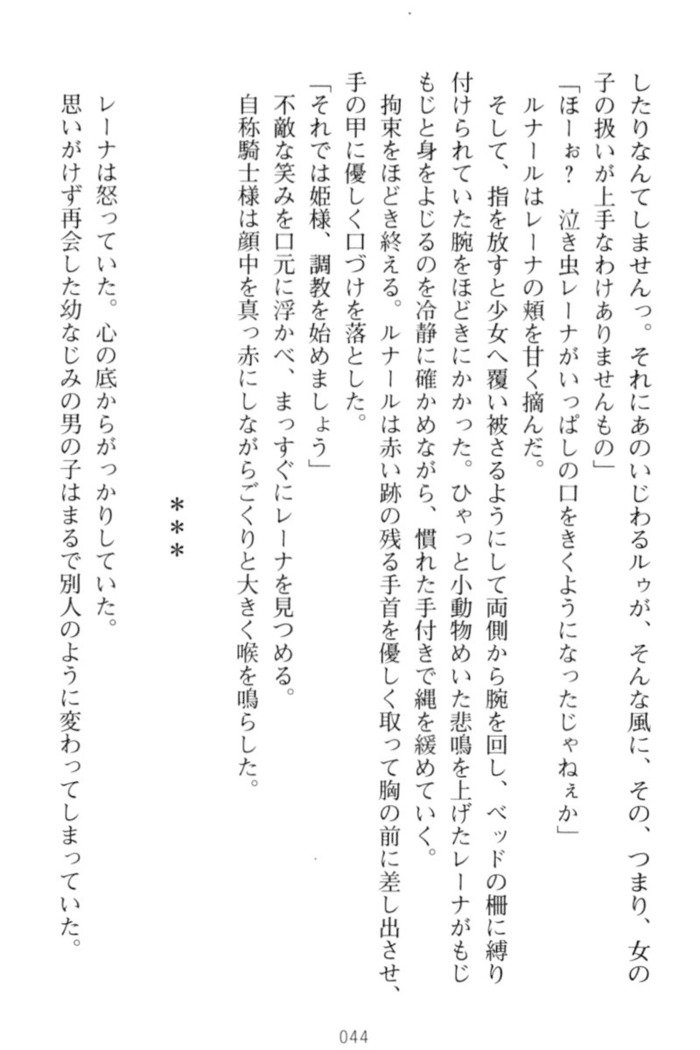 したりなんてしませんっ。それにあのいじわるルゥが、そんな風に、その、つまり、女の
子の扱いが上手なわけありませんもの」
「ほーぉ？　泣き虫レーナがいっぱしの口をきくようになったじゃねぇか」
ルナールはレーナの頬を甘く摘んだ。
そして、指を放すと少女へ覆い被さるようにして両側から腕を回し、ベッドの柵に縛り
付けられていた腕をほどきにかかった。ひゃっと小動物めいた悲鳴を上げたレーナがもじ
もじと身をよじるのを冷静に確かめながら、慣れた手付きで縄を緩めていく。
拘束をほどき終える。ルナールは赤い跡の残る手首を優しく取って胸の前に差し出させ、
手の甲に優しく口づけを落とした。
「それでは姫様、調教を始めましょう」
不敵な笑みを口元に浮かべ、まっすぐにレーナを見つめる。
自称騎士様は顔中を真っ赤にしながらごくりと大きく喉を鳴らした。
＊＊＊
レーナは怒っていた。心の底からがっかりしていた。
思いがけず再会した幼なじみの男の子はまるで別人のように変わってしまっていた。
044